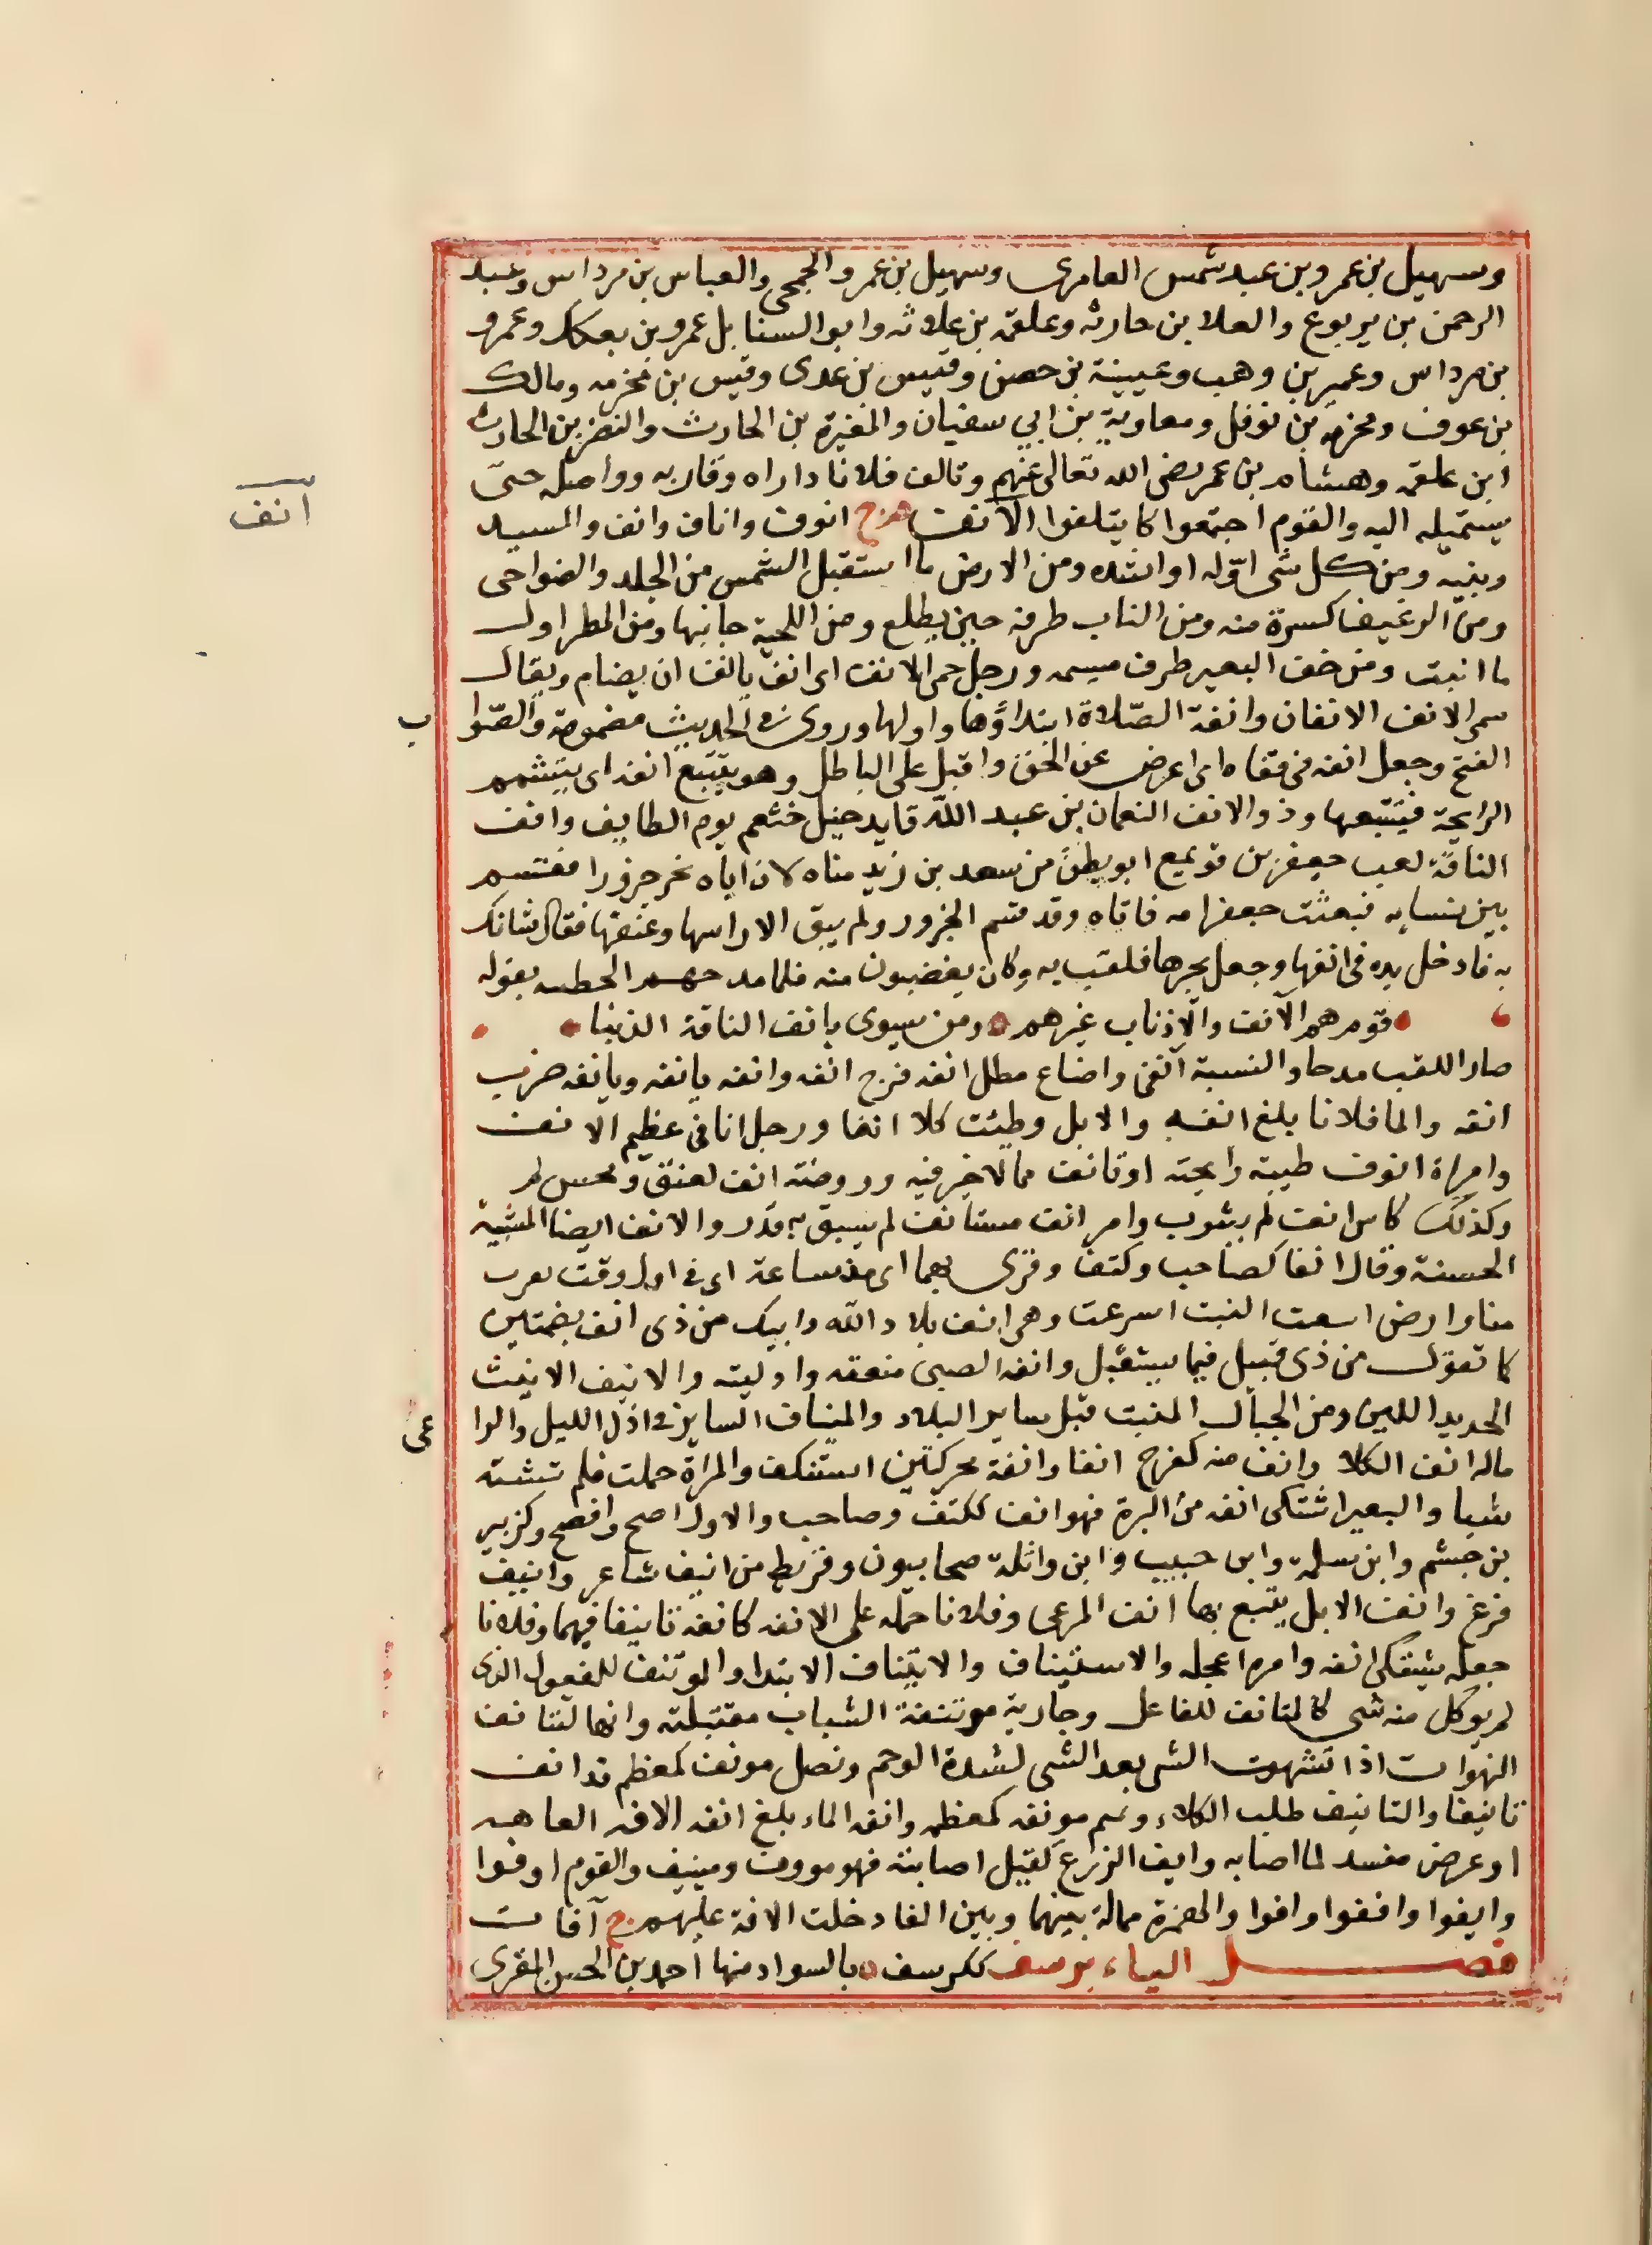 وسهيل بن عمرو بن عبد شمس العامرى وسهيل بن عمرو الجمحى والعباس بن مرداس وعبد
الرحمن بن يربوع والعلا بن حارثه وعلقمه بن علاثه وابو السنابل عمرو بن بعكك وعمرو
بن مرداس وعمير بن وهب وعيينة بن حصن وقيس بن عدى وقيس بن مخرمه ومالك
بن عوف ومخرمه بن نوفل ومعاوية بن ابي سفيان والمغيرة بن الحارث والنضر بن الحارث
ابن علقمه وهشام بن عمر رضى الله تعالى عنهم وتالف فلانا داراه وقاربه وواصله حتى
انف
يستميله اليه والقوم اجتمعوا كايتلفوا الانف م ج انوف واناف وانف والسيد
وبنيه ومن كل شى اوّله او اشده ومن الارض ما استقبل الشمس من الجلد والضواحى
ومن الرغيف كسرة منه ومن الناب طرفه حين يطلع ومن اللحية جانبها ومن المطر اول
ما انبت ومن خف البعير طرف ميسمه ورجل حمى الانف اى انف يانف ان يضام ويقال
سمى الانف الانفان وانفة الصّلاة ابتداؤها واولها وروى فى الحديث مضمومة والصّوا
ب
الفتح وجعل انفه فى قفاه اى اعرض عن الحق واقبل على الباطل وهو يتتبع انفه اى يتشمم
الرايحة فيتبعها وذو الانف النعمان بن عبد اللّه قايد خيل خثعم يوم الطايف وانف
الناقة لعب جعفر بن قويع ابو بطن من سعد بن زيد مناه لان اباه نحر جزورا فقسم
بين نسايه فبعثت جعفرا مه فاتاه وقد قسم الجزور ولم يبق الا راسها وعنقها فقال شانك
به فادخل يده فى انفها وجعل يجرها فلقب به وكان يغضبون منه فلما مدحهم الحطيه بقوله
قوم هم الانف والاذناب غيرهم ومن يسوى بانف الناقة الذنبا
صار اللقب مدحا والنسبة انفى واضاع مطلب انفه فرج انفه وانفه يانفه ويانفه ضرب
انفه والما فلانا بلغ انفه والابل وطئت كلا انفا ورجل انافى عظيم الانف
وامراة انوف طيبة رايحته او تانف مما لا خير فيه وروضة انف كعنق ومحسن لم
وكذلك كاس انف لم يشرب وامر انف مستانف لم يسبق به قدر والانف ايضا المشية
الحسنة وقال انفا كصاحب وكتف وقرى بهما اى مذ ساعة اى فى اول وقت يقرب
منا وارض اسعت النبت اسرعت وهى انف بلاد الله واتيك من ذى انف بضمتين
كما تقول من ذى قبل فيما يستقبل وانفه الصبى منعقه واوليته والانيف الانيث
الحديد اللين ومن الجبال المنبت قبل ساير البلاد والمئناف الساير فى اول الليل والرا
عى
ماله انف الكلا وانف منه كفرح انفا وانفة محركتين استنكف والمراة حملت فلم تشته
شيا والبعير اشتكى انفه من البرة فهو انف ككتف وصاحب والاول اصح وافصح وكزبير
بن جشم وابن سلمة وابن حبيب وابن واثلة صحابيون وقريط من انيف شاعر وانيف
فرغ وانف الابل يتبع بها انف المرعى وفلانا حمله على الانفه كانفه تانيفا فيهما وفلانا
جعله يشتكى انفه وامره اعجله والاستيناف والايتناف الابتدا والموتنف للمفعول الذى
لم يوكل منه شى كالمتانف للفاعل وجارية موتنفة الشباب مقتبلته وانها لتتانف
الشهوات اذا تشهوت الشى بعد الشى لشدة الوحم ونصل مونف كمعظم قد انف
تانيفا والتانيف طلب الكلاء وغم مونفه كمعظمه وانفه الماء بلغ انفه الافه العاهه
او عرض مفسد لما اصابه وايف الزرع كقيل اصابته فهو موؤف ومييف والقوم اوفوا
وايفوا وافقوا وافوا والهمزة ممالة بينهما وبين الفا دخلت الافة عليهم ج آفات
فصل الياء برسف ككرسف بالسواد منها احمد بن الحسن المقرى